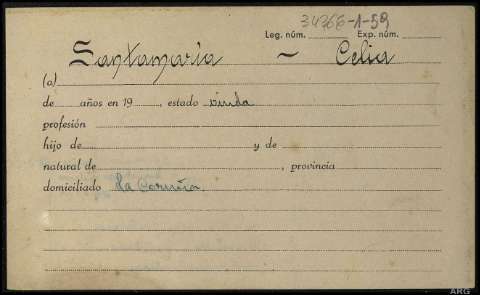 34366-1-59
Leg. núm. Exp. núm.
Santamaria - Celia
(a)
de años en 19 , estado viuda
profesión
hijo de y de
natural de , provincia
domiciliado La Coruña.
ARG